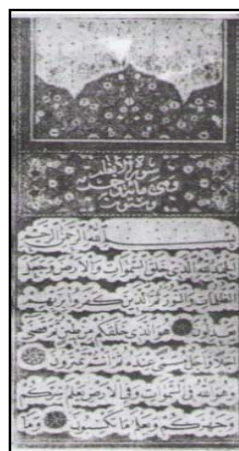 سورة الانعام
وهي مائة
وستون
بسم الله الرحمن الرحيم
الحمد لله الذي خلق السموات والارض وجعل
الظلمات والنور ثم الذين كفروا بربهم
يعدلون هو الذي خلقكم من طين ثم قضى
اجلا واجل مسمى عنده ثم انتم تمترون
وهو الله في السموات وفي الارض يعلم سركم
وجهركم ويعلم ما تكسبون وما